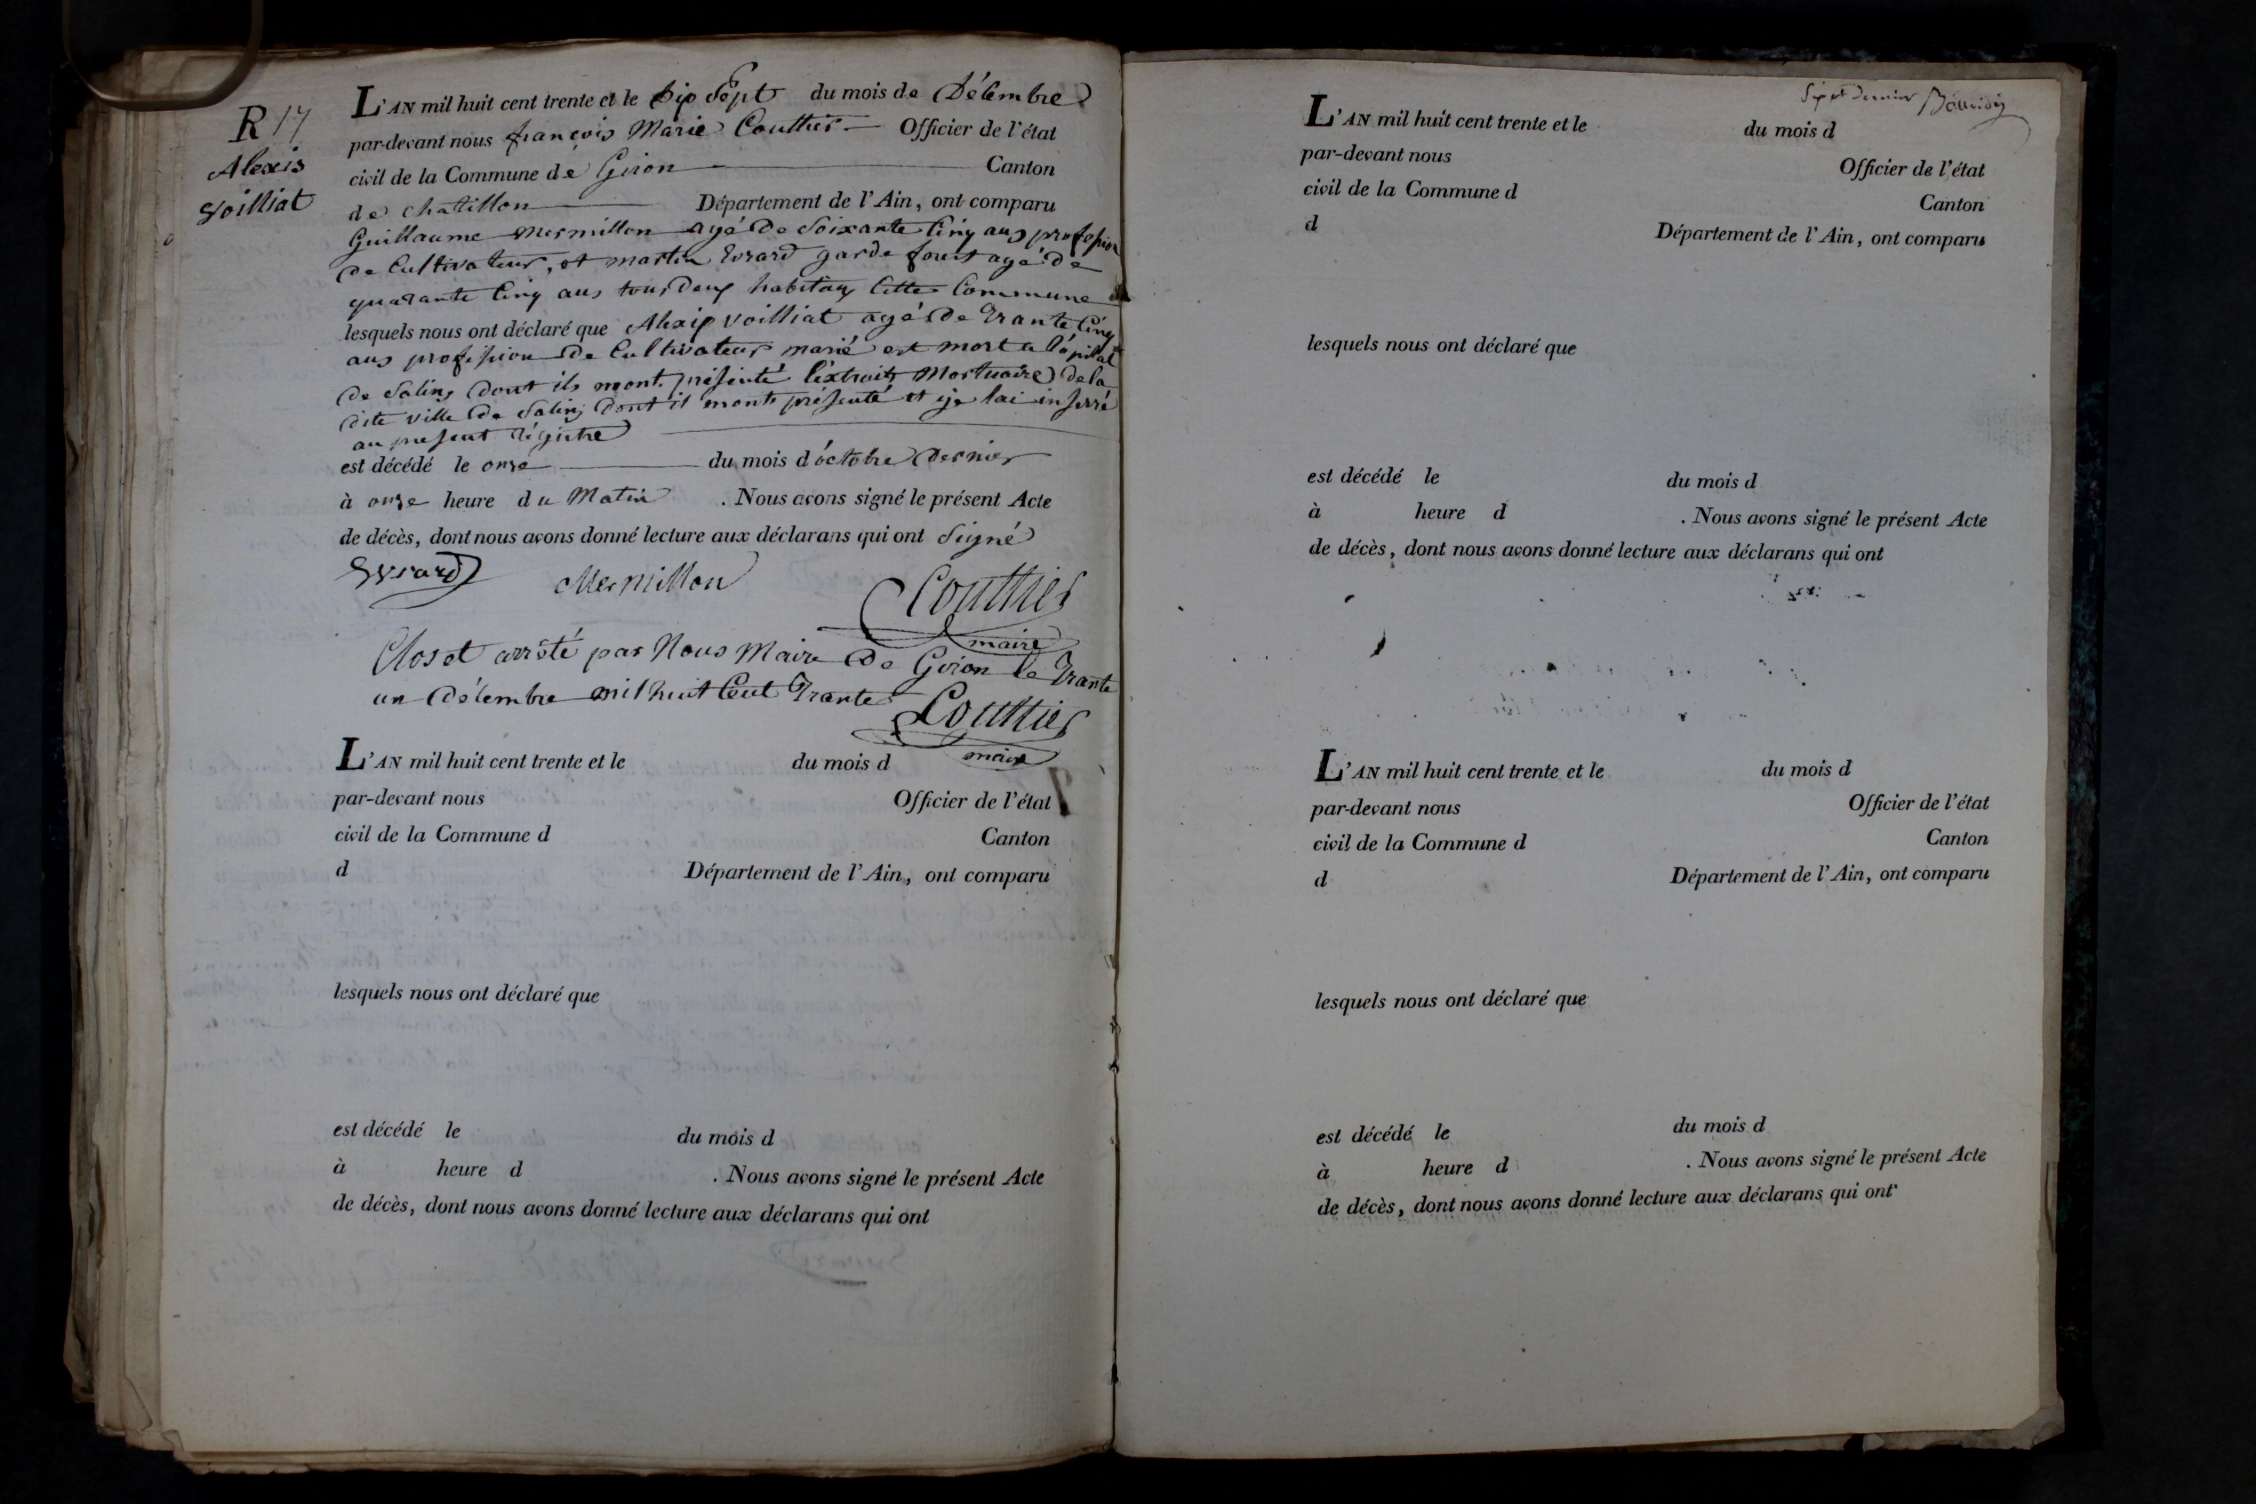 R 17
Alexis
Voilliat
L'AN mil huit cent trente et le Dip Sept du mois de Délembre
par-devant nous françois Marie Couttier Officier de l'état
civil de la Commune de Giron Canton
de chatillon Département de l'Ain, ont comparu
Guillaume Mermillon agé de Soixante Cinq ans profession
de Cultivateur, et martin Evrard garde forest agé de
quarante Cinq ans tous deux habitans Cette Commune
lesquels nous ont déclaré que Alexis Voilliat agé de Trante Cinq
ans profession de Cultivateur marié est mort a lôpital
de Salins dont ils mont présenté l'extrait Mortuaire de la
dite ville de Salins dont il mont présenté et je lai inserré
au présent régistre
est décédé le onze du mois d'octobre dernier
à onze heure du Matin . Nous avons signé le présent Acte
de décès, dont nous avons donné lecture aux déclarans qui ont Signé
Evrard Mermillon Couttier
maire
Clos et arrêté par Nous Maire de Giron le Trante
un Délembre mil huit Cent Trante Couttier
maire
L'AN mil huit cent trente et le du mois d
par-devant nous Officier de l'état
civil de la Commune d Canton
d Département de l'Ain, ont comparu
lesquels nous ont déclaré que
est décédé le du mois d
à heure d . Nous avons signé le présent Acte
de décès, dont nous avons donné lecture aux déclarans qui ont
dernier
L'AN mil huit cent trente et le du mois d
par-devant nous Officier de l'état
civil de la Commune d Canton
d Département de l'Ain, ont comparu
lesquels nous ont déclaré que
est décédé le du mois d
à heure d . Nous avons signé le présent Acte
de décès, dont nous avons donné lecture aux déclarans qui ont
L'AN mil huit cent trente et le du mois d
par-devant nous Officier de l'état
civil de la Commune d Canton
d Département de l'Ain, ont comparu
lesquels nous ont déclaré que
est décédé le du mois d
à heure d . Nous avons signé le présent Acte
de décès, dont nous avons donné lecture aux déclarans qui ont